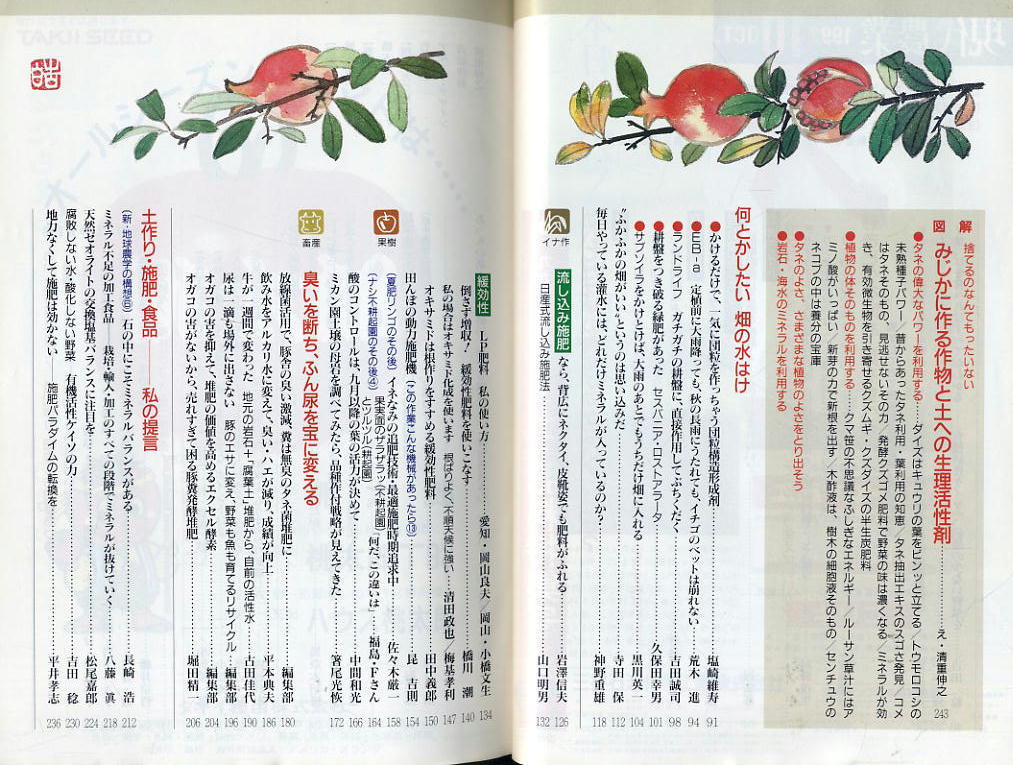 図解
捨てるのなんてもったいない
みじかに作る作物と土への生理活性剤
え・清重伸之
243
●タネの偉大なパワーを利用する……ダイズはキュウリの葉をピンッと立てる/トウモロコシの
未熟種子パワー/昔からあったタネ利用・葉利用の知恵/タネ抽出エキスのスゴさ発見/コメ
はタネそのもの、見逃せないその力/発酵クズコメ肥料で野菜の味は濃くなる/ミネラルが効
き、有効微生物を引き寄せるクズムギ・クズダイズの半生炭肥料
●植物の体そのものを利用する……クマ笹の不思議なふしぎなエネルギー/ルーサン草汁にはア
ミノ酸がいっぱい/新芽の力で新根を出す/木酢液は、樹木の細胞液そのもの/センチュウの
ネコブの中は養分の宝庫
●タネのよさ、さまざまな植物のよさをとり出そう
●岩石・海水のミネラルを利用する
何とかしたい 畑の水はけ
●かけるだけで、一気に団粒を作っちゃう団粒構造形成剤 塩崎維寿 91
●EB-a 定植前に大雨降っても、秋の長雨にうたれても、イチゴのベットは崩れない 荒木進 94
●ランドライフ ガチガチの耕盤に、直接作用してぶちくだく 吉田誠司 98
●耕盤をつき破る緑肥があった セスバニア・ロストアラータ 久保田幸男 101
●サブソイラをかけとけば、大雨のあとでもうちだけ畑に入れる 黒川英一 104
“ふかふかの畑がいい”というのは思い込みだ 寺田保 112
毎日やっている灌水には、どれだけミネラルが入っているのか? 神野重雄 118
イナ作
流し込み施肥 なら、背広にネクタイ、皮靴姿でも肥料がふれる 岩澤信夫 126
日産式流し込み施肥法 山口明男 132
緩効性 LP肥料 私の使い方 愛知・岡山良夫/岡山・小橋文生 134
倒さず増収! 緩効性肥料を使いこなす 橋川潮 140
私の場合はオキサミド化成を使います 根ばりよく、不順天候に強い 清田政也/梅基孝利 147
オキサミドは根作りをすすめる緩効性肥料 田中義郎 150
田んぼの動力施肥機(この作業こんな機械があったら⑬) 昆吉則 154
果樹
(夏肥リンゴその後) イネなみの追肥技術・最適施肥時期追求中 佐々木厳一 158
(ナシ不耕起園のその後④) 果実面のザラザラッ(不耕起園)とツルツル(耕起園)「何だ、この違いは」 福島・Fさん 164
酸のコントロールは、九月以降の葉の活力が決めて 中間和光 166
ミカン園土壌の母岩を調べてみたら、品種作付戦略が見えてきた 箸尾光恢 172
畜産
臭いを断ち、ふん尿を宝に変える
放線菌活用で、豚舎の臭い激減、糞は無臭のタネ菌堆肥に 編集部 180
飲み水をアルカリ水に変えて、臭い・ハエが減り、成績が向上 平本典夫 186
牛が一週間で変わった 地元の岩石+「腐葉土」堆肥から、自前の活性水 古田佳代 190
尿は一滴も場外に出さない 豚のエサに変え、野菜も魚も育てるリサイクル 編集部 196
オガコの害を抑えて、堆肥の価価を高めるエクセル酵素 編集部 204
オガコの害がないから、売れすぎて困る豚糞発酵堆肥 堀田精二 206
土作り・施肥・食品 私の提言
(新・地球農学の構想⑥) 石の中にこそミネラルバランスがある 長崎浩 212
ミネラル不足の加工食品 栽培・輸入・加工のすべての段階でミネラルが抜けていく 八藤眞 218
天然ゼオライトの交換塩基バランスに注目を 松尾嘉郎 224
腐敗しない水・酸化しない野菜 有機活性ケイソの力 吉田稔 230
地力なくして施肥は効かない 施肥パラダイムの転換を 平井孝志 236
TAKII SEED